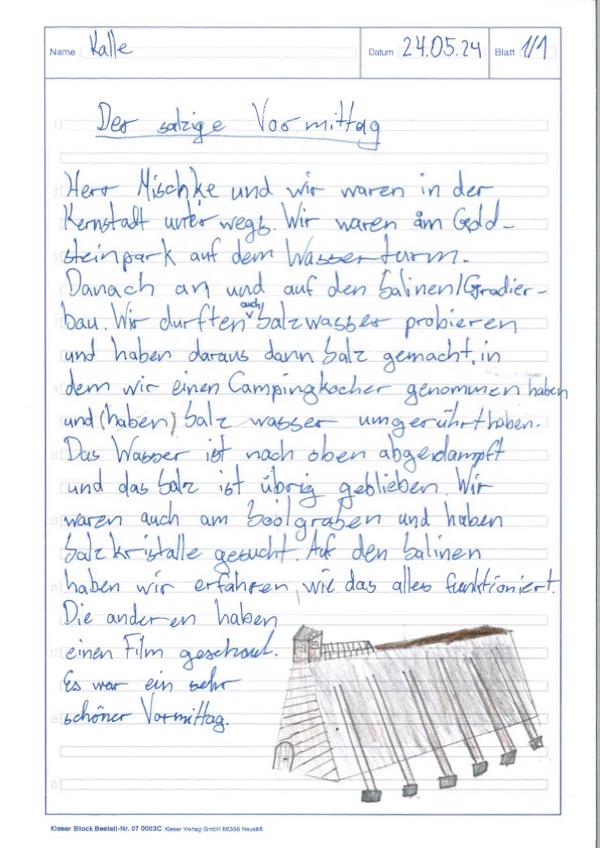 Name Kalle Datum 24.05.24 Blatt 1/1
Der salzige Vormittag
Herr Mischke und wir waren in der
Kernstadt unterwegs. Wir waren am Gold-
steinpark auf dem Wasserturm.
Danach an und auf den Salinen/Gradier-
bau. Wir durften auch Salzwasser probieren
und haben daraus dann Salz gemacht, in
dem wir einen Campingkocher genommen haben
und (haben) Salz wasser umgerührt haben.
Das Wasser ist nach oben abgedampft
und das Salz ist übrig geblieben. Wir
waren auch am Soolgraben und haben
Salzkristalle gesucht. Auf den Salinen
haben wir erfahren, wie das alles funktioniert.
Die anderen haben
einen Film geschaut.
Es war ein sehr
schöner Vormittag.
Klaser Block Bestell-Nr. 07 0003C Klaser Verlag GmbH 86356 Neusäß